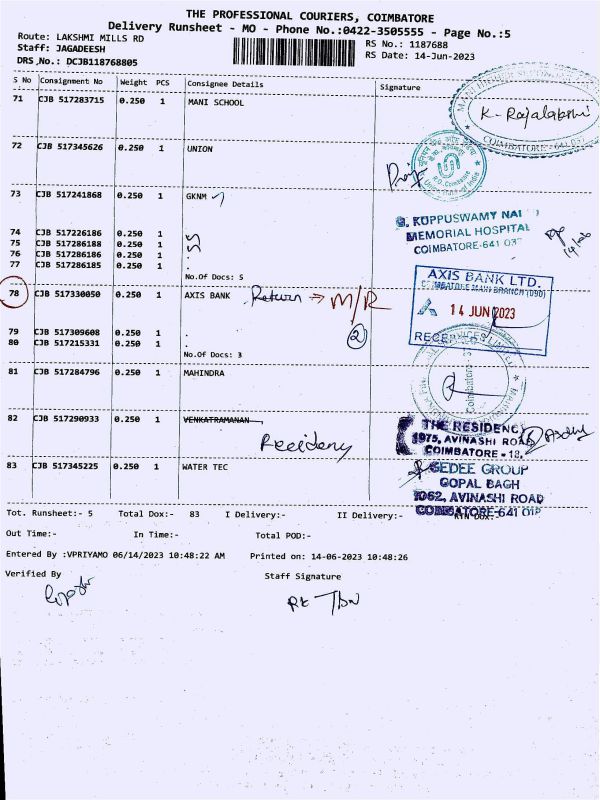 THE PROFESSIONAL COURIERS, COIMBATORE
Delivery Runsheet - MO - Phone No.:0422-3505555 - Page No.:5
Route: LAKSHMI MILLS RD
RS No.: 1187688
Staff: JAGADEESH
RS Date: 14-Jun-2023
DRS,No.: DCJB118768805
S No Consignment No Weight PCS Consignee Details Signature
71 CJB 517283715 0.250 1 MANI SCHOOL
K. Rajalakshmi
COIMBATORE - 641 037
72 CJB 517345626 0.250 1 UNION
73 CJB 517241868 0.250 1 GKNM
G. KUPPUSWAMY NAIDU
MEMORIAL HOSPITAL
COIMBATORE-641 037
74 CJB 517226186 0.250 1
75 CJB 517286188 0.250 1
76 CJB 517286186 0.250 1 .
77 CJB 517286185 0.250 1 .
No.Of Docs: 5
78 CJB 517330050 0.250 1 AXIS BANK Return → M/R
2
AXIS BANK LTD.
COIMBATORE MAIN BRANCH (090)
14 JUN 2023
RECEIVED
79 CJB 517309608 0.250 1 .
80 CJB 517215331 0.250 1 .
No.Of Docs: 3
81 CJB 517284796 0.250 1 MAHINDRA
82 CJB 517290933 0.250 1 VENKATRAMANAN
Residency
THE RESIDENCY
1075, AVINASHI ROAD
COIMBATORE - 18.
83 CJB 517345225 0.250 1 WATER TEC
GEDEE GROUP
GOPAL BAGH
1062, AVINASHI ROAD
COIMBATORE-641 018
Tot. Runsheet:- 5 Total Dox:- 83 I Delivery:- II Delivery:- RTN Dox:-
Out Time:- In Time:- Total POD:-
Entered By :VPRIYAMO 06/14/2023 10:48:22 AM Printed on: 14-06-2023 10:48:26
Verified By Staff Signature